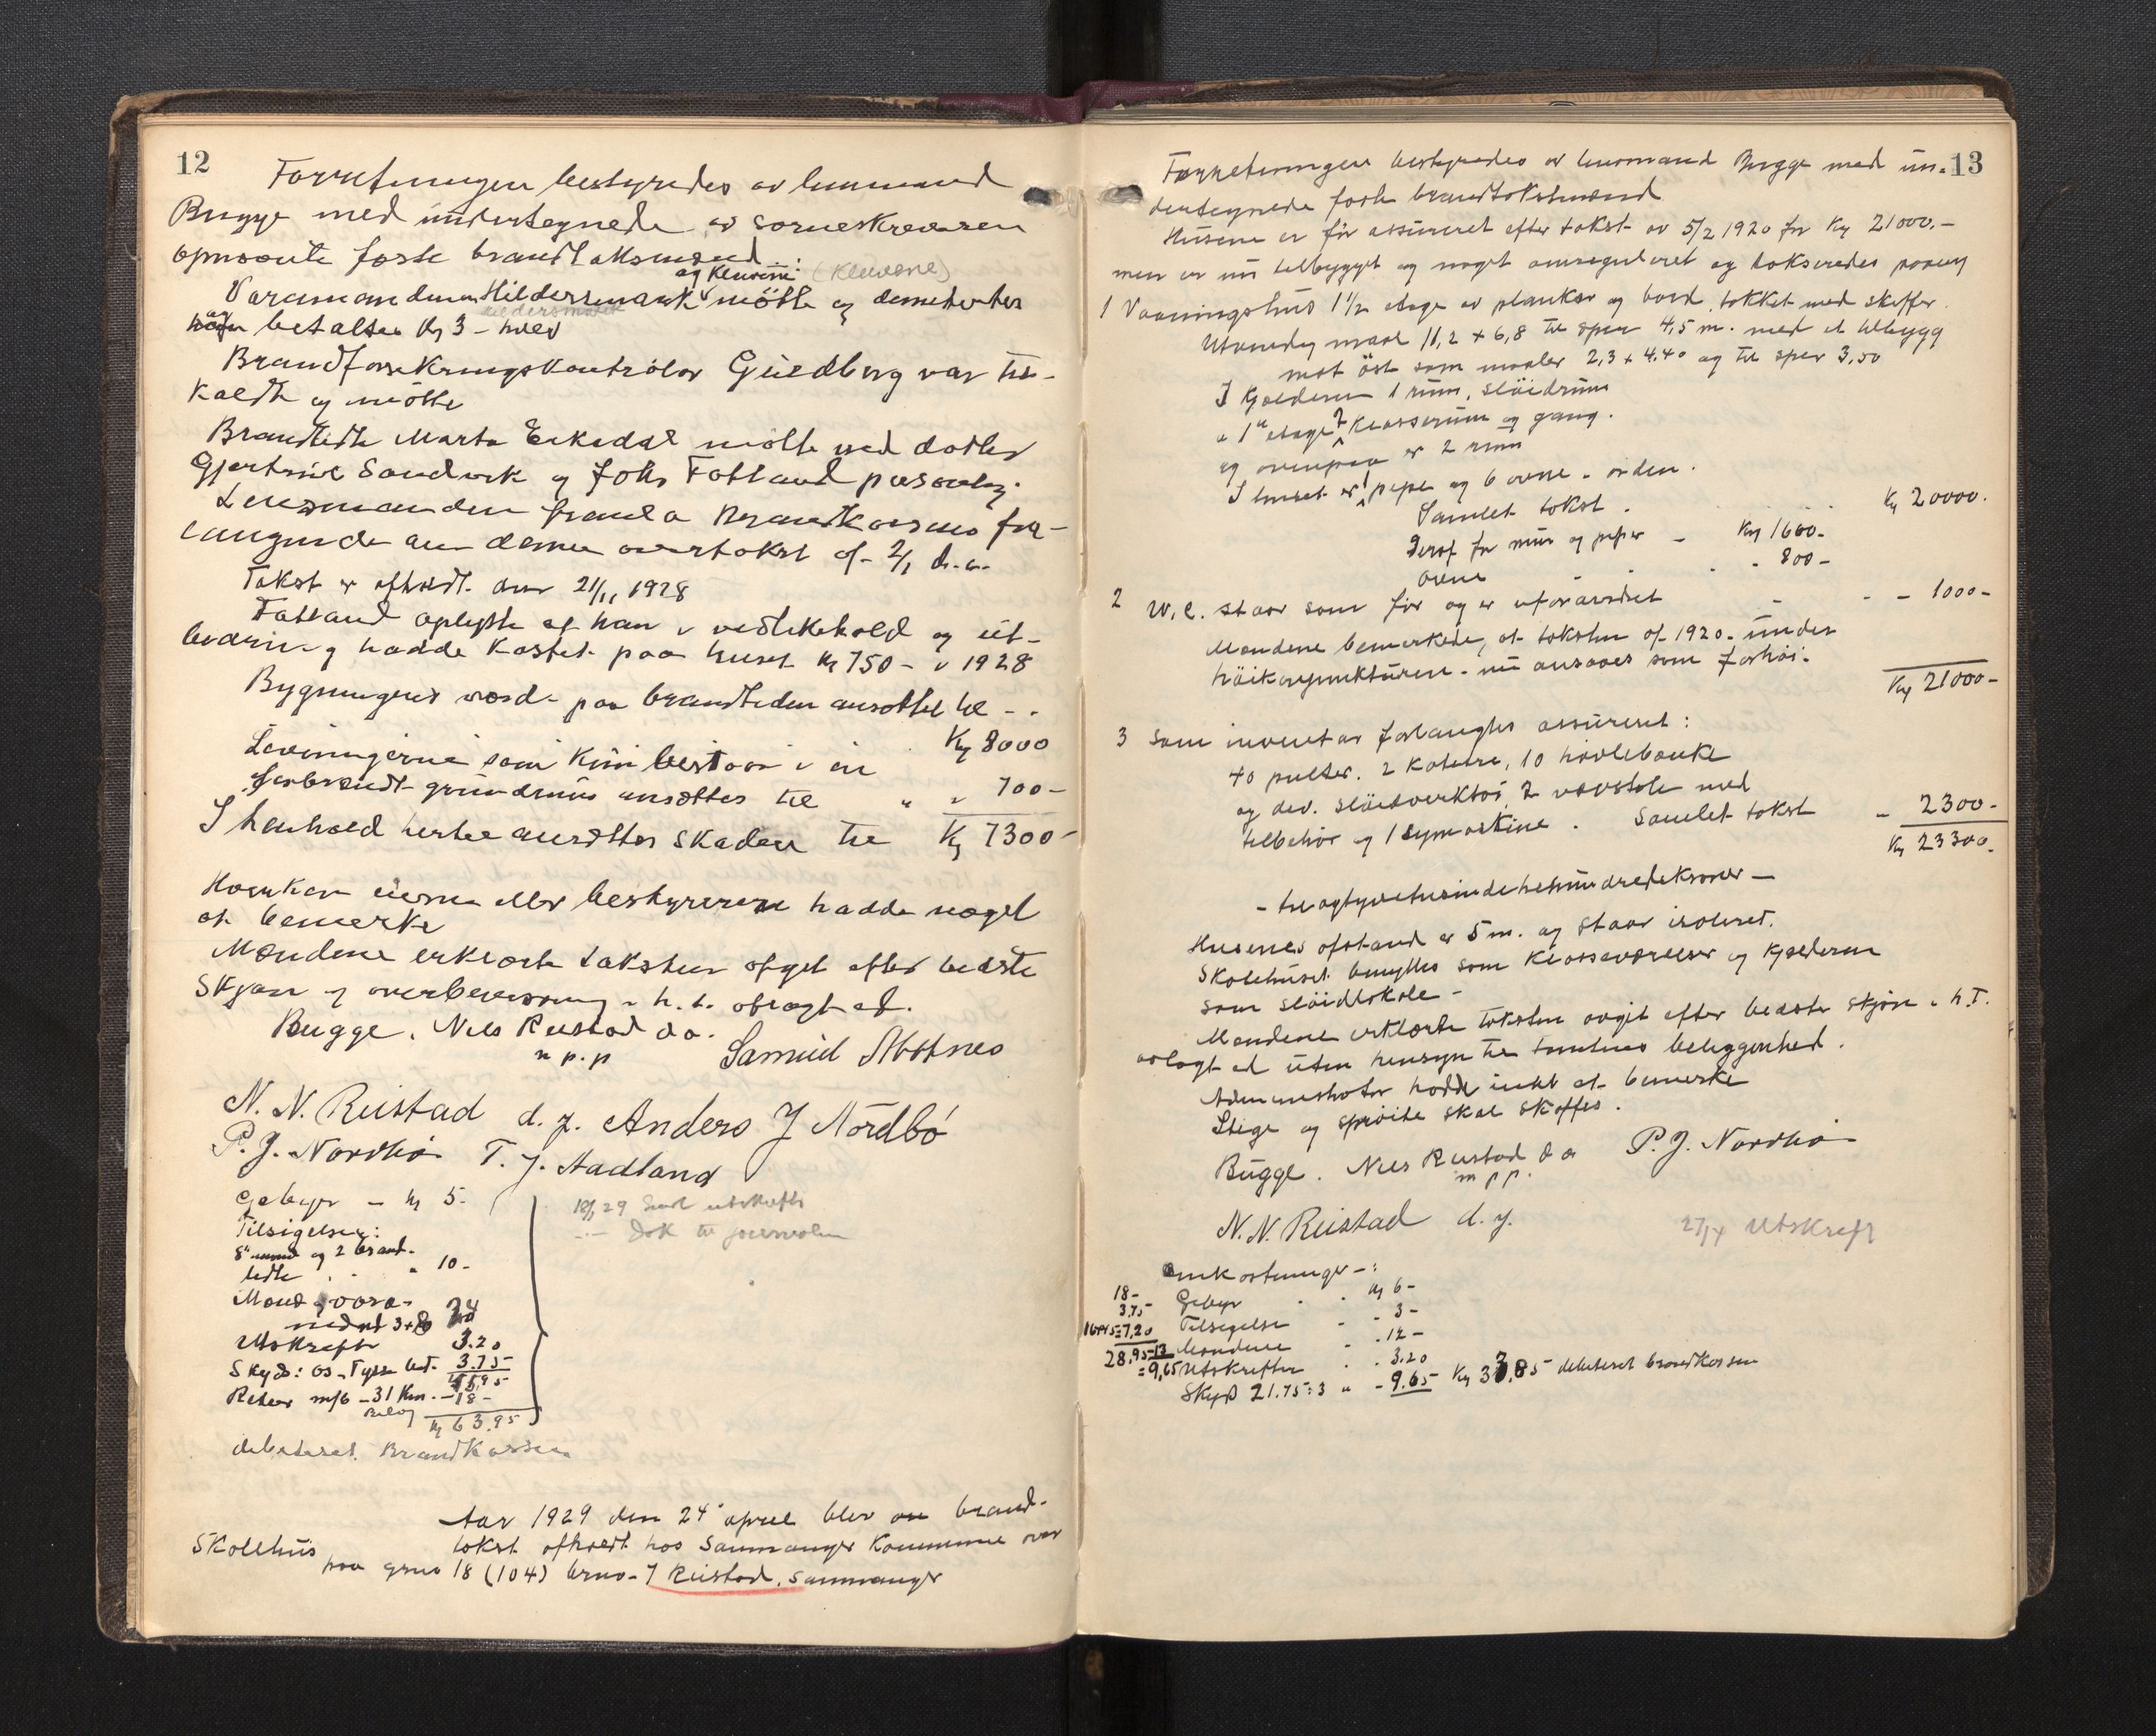 12
Forretningen bestyredes av lensmand
Bugge med undertegnede av sorenskriveren
opnævnte faste brandtakstmænd:
og Kleivene (Kleivene)
Varamændene Hildersmark møtte og dimitertes
Hildersmark
og betaltes Kr 3 - hver
Brandforsikringskontrolør Guldberg var til-
kaldt og møtte
Brandlidte Marta Eikedal møtte ved datter
Gjertrud Sandvik og Johs Fotland personlig.
Lensmanden fremla Brandkassens for-
langende om denne overtakst af 2/1 d.a.
Takst er afholdt den 21/11 1928
Fotland oplyste at han i vedlikehold og ut-
bedring hadde kostet paa huset Kr 750 - i 1928
Bygningens værd paa brandtiden ansættes til - -
Kr 8000
Levningerne som kun bestaar i en
forbrændt grundmur ansættes til " " 700 -
I henhold hertil ansættes skaden til Kr 7300 -
Hverken eieren eller bestyreren hadde noget
at bemerke
Mændene erklærte taksten afgit efter bedste
skjøn og overbevisning i h. t. aflagt ed.
Bugge. Nils Reistad d.æ. Samuel Aldsnes
m p.p
N. N. Reistad d. y. Anders J Nordbø
P. J. Nordbø T. J. Aadland
Gebyr - Kr 5 -
Tilsigelse:
8 mænd og 2 brand-
lidte . . " 10 -
Mænd og vara-
mænd 3+8 24
Utskrift 3.20
Skyds: Os - Tysse bet. 3.75
45,95
Retur m/b - 31 Km. - 18 -
Bilag Kr 63.95
18/1 29 Send utskrift
- " - Dok til journalen
debiteret Brandkassen
Aar 1929 den 24 april blev en brand-
takst afholdt hos Samnanger Kommune over
Skolehus
paa gno 18 (104) bno - 7 Reistad, Samnanger
13
Forretningen bestyredes av lensmand Bugge med un-
dertegnede faste brandtakstmænd
Husene er før assureret efter takst av 5/2 1920 for Kr 21000.-
men er nu tilbygget og noget omreguleret og takseredes paany
1 Vaaningshus 1 1/2 etage av planker og bord, tækket med skiffer.
Utvendig maal 11,2 + 6,8 til sper 4,5 m. med et tilbygg
mot øst som maaler 2,3 + 4.40 og til sper 3,50
I Kjælderen 1 rum, sløidrum
i 1ste etage 2 klasserum og gang.
og ovenpaa er 2 rum
I huset er 1 pipe og 6 ovne i orden.
Samlet takst . . . . Kr 20000.
Derof for mur og piper - Kr 1600 -
ovne . . - 800 -
2 W.C. staar som før og er uforandret - - - 1000 -
Mændene bemerkede, at taksten af 1920 - under
høikonjunkturen - nu ansaaes som for høi.
Kr 21000 -
3 Som inventar forlangtes assureret:
40 pulter. 2 Katetre, 10 høvlebænke
og div. sløidverktøi, 2 vævstole med
tilbehør og 1 symaskine. Samlet takst - 2300 -
Kr 23300 -
- treogtyvetusindetrehundredekroner -
Husenes afstand er 5 m. og staar isoleret.
Skolehuset benyttes som klasseværelser og kjælderen
som sløidlokale -
Mændene erklærte taksten avgit efter bedste skjøn i h.t.
avlagt ed uten hensyn til tomtens beliggenhed.
Administrator hadde intet at bemerke
Stige og sprøite skal skaffes.
Bugge. Nils Reistad d.æ P. J. Nordbø
m p p.
N. N. Reistad d. y.
27/4 Utskrift
Omkostninger - :
18 - Gebyr . . Kr 6 -
3.75 Tilsigelse - - 3 -
16x45=7.20 Mændene - . 12 -
28.95:3 Utskriften . . 3.20
= 9,65 Skyds 21.75:3 " - 9.65 Kr 33,85 debiteret brandkassen